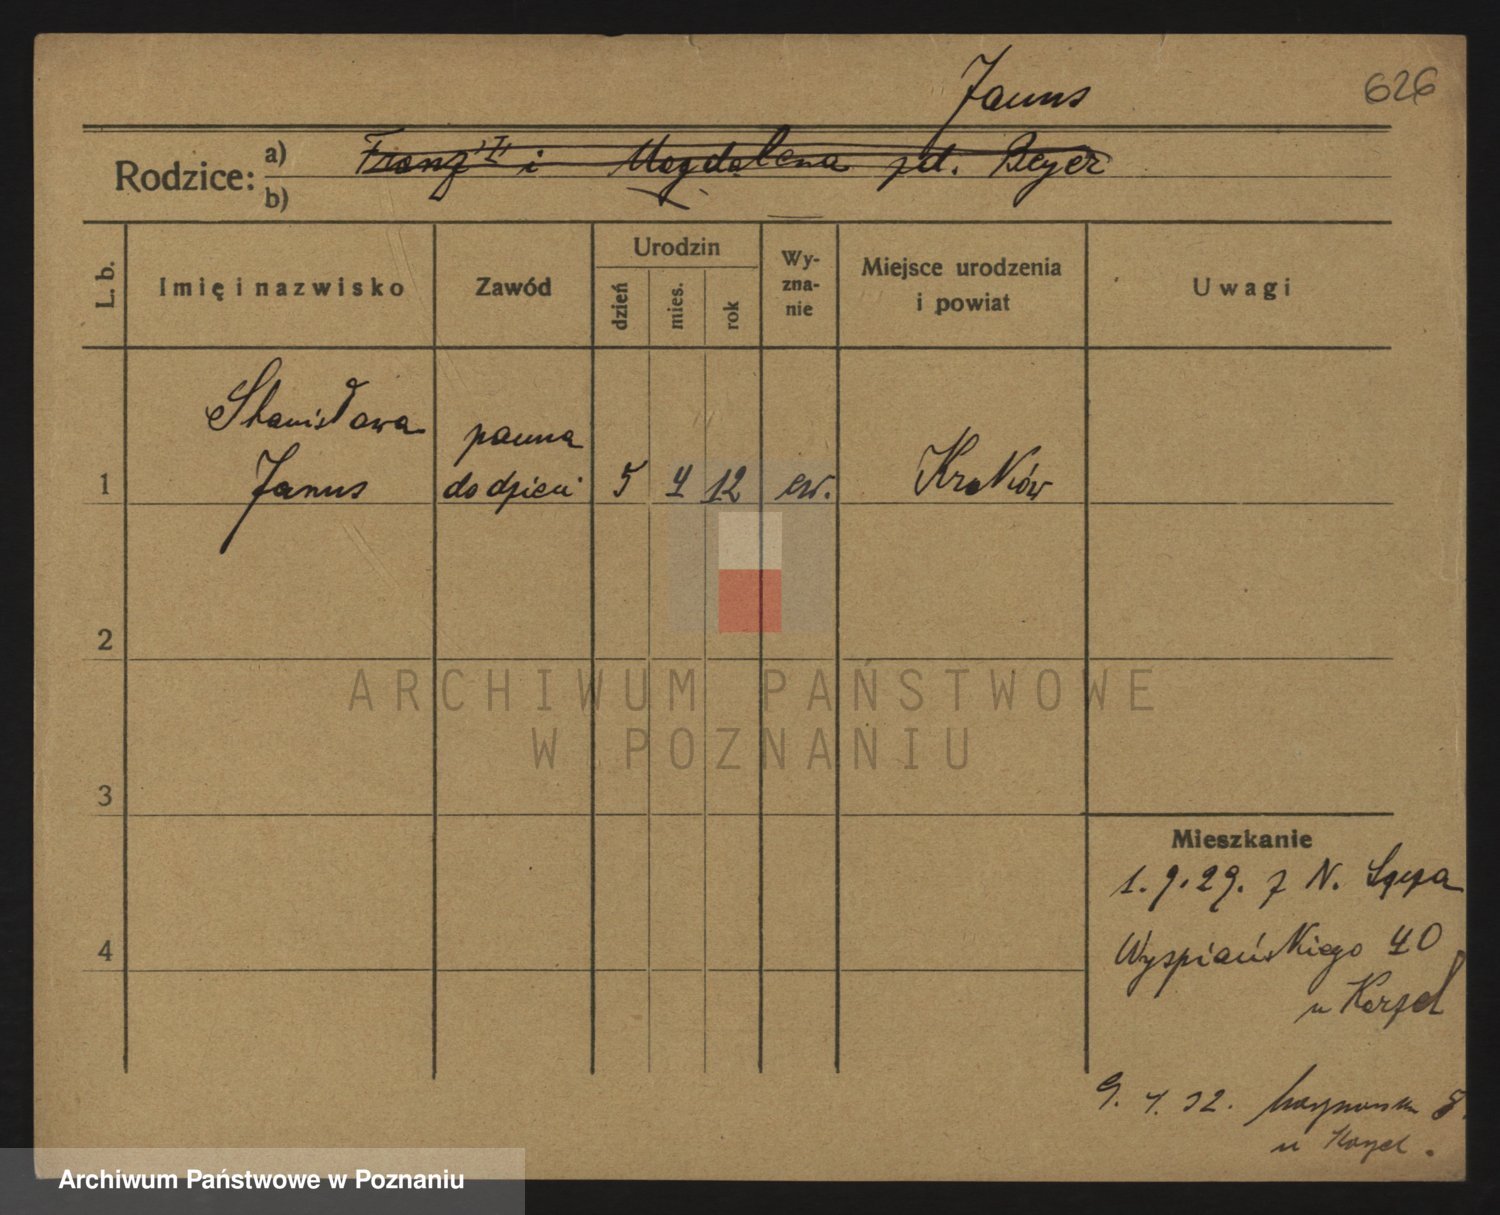 Janus
626
Rodzice:
a) Franz i Magdalena zd. Beyer
b)
L. b.
Imię i nazwisko
Zawód
Urodzin
dzień
mies.
rok
Wy-
zna-
nie
Miejsce urodzenia
i powiat
Uwagi
Stanisława
Janus
panna
do dzieci
1
5 4 12 ew. Kraków
2
ARCHIWUM PAŃSTWOWE
W POZNANIU
3
Mieszkanie
1.9.29. z N.
Wyspiańskiego 40
4
u
9. 4. 32.
u
Archiwum Państwowe w Poznaniu